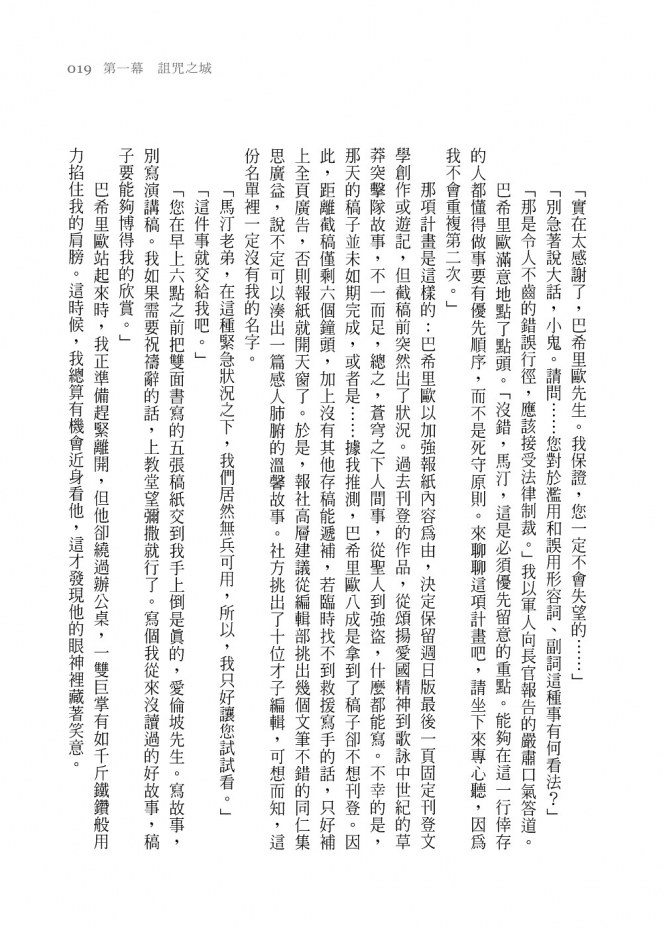 019 第一幕 詛咒之城
「實在太感謝了，巴希里歐先生。我保證，您一定不會失望的……」
「別急著說大話，小鬼。請問……您對於濫用和誤用形容詞、副詞這種事有何看法？」
「那是令人不齒的錯誤行徑，應該接受法律制裁。」我以軍人向長官報告的嚴肅口氣答道。
巴希里歐滿意地點了點頭。「沒錯，馬汀，這是必須優先留意的重點。能夠在這一行倖存
的人都懂得做事要有優先順序，而不是死守原則。來聊聊這項計畫吧，請坐下來專心聽，因爲
我不會重複第二次。」
那項計畫是這樣的：巴希里歐以加強報紙內容爲由，決定保留週日版最後一頁固定刊登文
學創作或遊記，但截稿前突然出了狀況。過去刊登的作品，從頌揚愛國精神到歌詠中世紀的草
莽突擊隊故事，不一而足，總之，蒼穹之下人間事，從聖人到強盜，什麼都能寫。不幸的是，
那天的稿子並未如期完成，或者是……據我推測，巴希里歐八成是拿到了稿子卻不想刊登。因
此，距離截稿僅剩六個鐘頭，加上沒有其他存稿能遞補，若臨時找不到救援寫手的話，只好補
上全頁廣告，否則報紙就開天窗了。於是，報社高層建議從編輯部挑出幾個文筆不錯的同仁集
思廣益，說不定可以湊出一篇感人肺腑的溫馨故事。社方挑出了十位才子編輯，可想而知，這
份名單裡一定沒有我的名字。
「馬汀老弟，在這種緊急狀況之下，我們居然無兵可用，所以，我只好讓您試試看。」
「這件事就交給我吧。」
「您在早上六點之前把雙面書寫的五張稿紙交到我手上倒是眞的，愛倫坡先生。寫故事，
別寫演講稿。我如果需要祝禱辭的話，上教堂望彌撒就行了。寫個我從來沒讀過的好故事，稿
子要能夠博得我的欣賞。」
巴希里歐站起來時，我正準備趕緊離開，但他卻繞過辦公桌，一雙巨掌有如千斤鐵鑽般用
力掐住我的肩膀。這時候，我總算有機會近身看他，這才發現他的眼神裡藏著笑意。